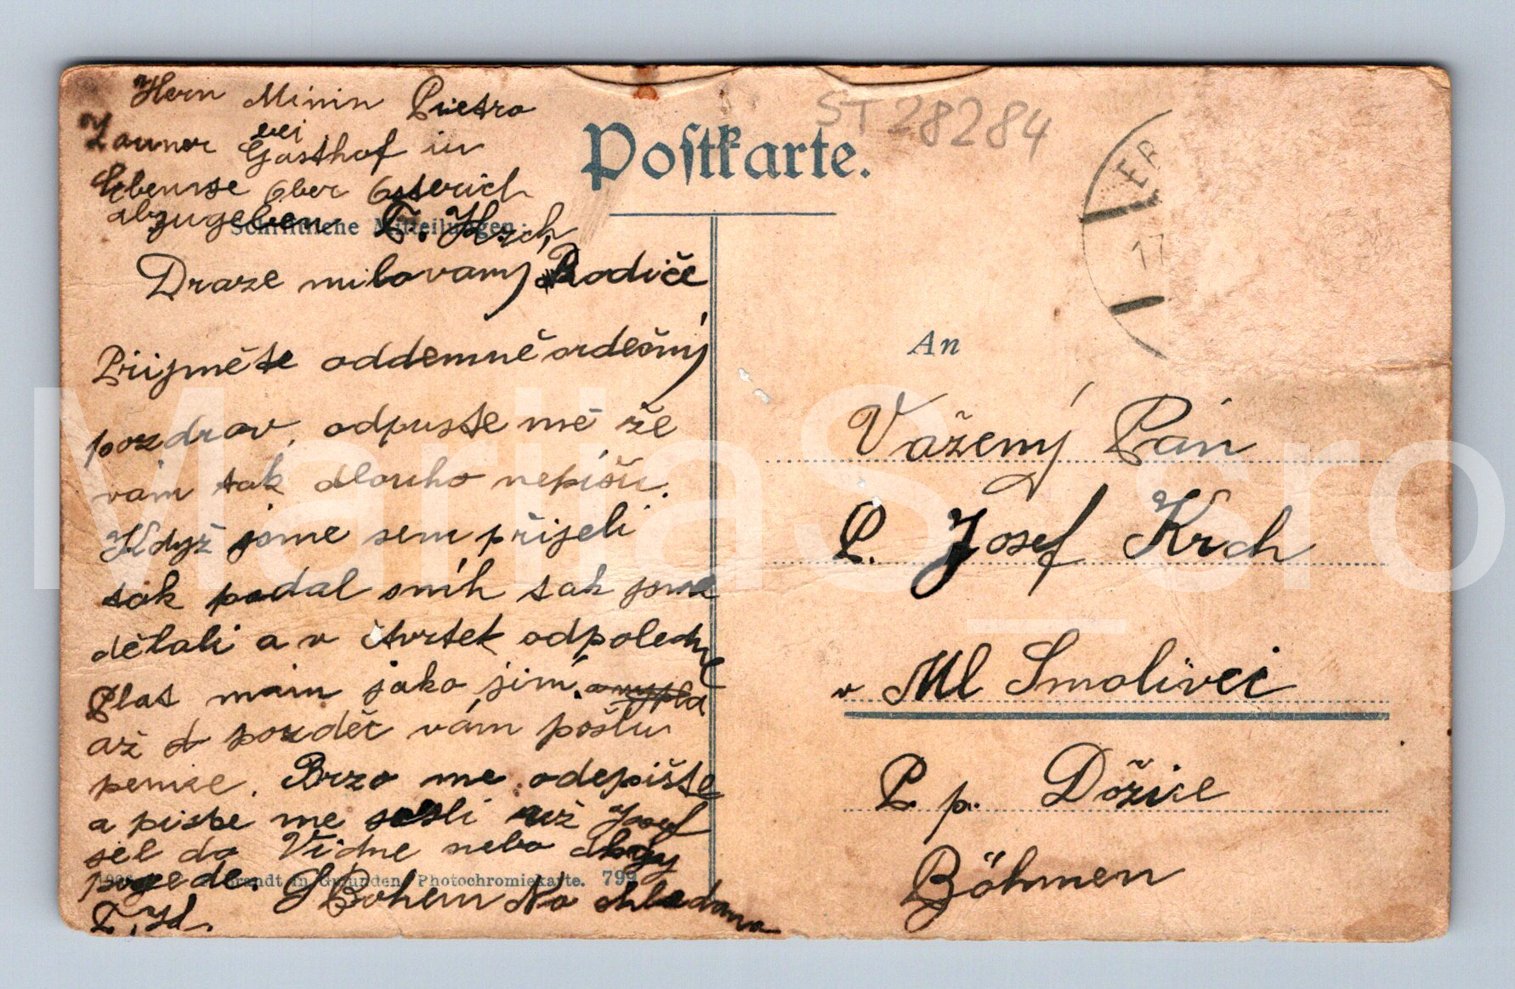 Hern Minin Pietro
Zauner bei Gasthof in
Ebense Ober Osterich
abzugeben F. Krch
Postkarte.
ST28284
Schriftliche Mitteilungen:
Draze milovaný Rodiče
Přijměte oddemně srdečný
pozdrav, odpuste mě že
vám tak dlouho nepíšu.
Když jsme sem přijeli
tak padal sníh tak jsme
dělali a v čtvrtek odpoledne
Plat mám jako jiní.
až d pozděč vám pošlu
penize. Brzo me odepište
a piste me jestli už Josef
šel do Vídne nebo kdy
pojede. S Bohem Na shledanou
F. K.
Brandt in Gmunden. Photochromiekarte. 799
17
An
Vážený Pán
P. Josef Krch
v Ml Smolivci
P. p. Dožice
Böhmen
MarijaS__sro